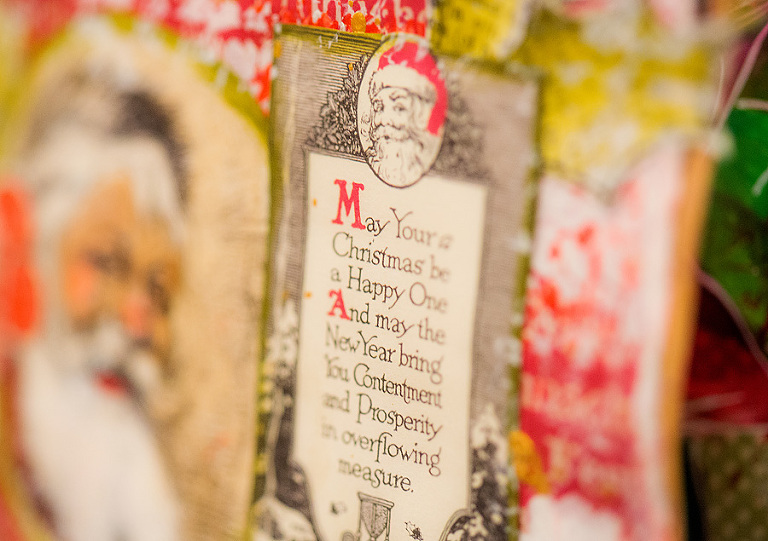 May Your
Christmas be
a Happy One
And may the
New Year bring
You Contentment
and Prosperity
in overflowing
measure.